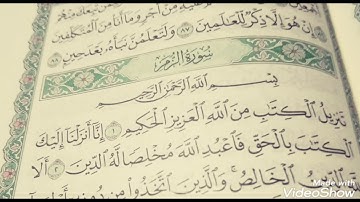 أَجْرٍ وَمَآ أَنَا۠ مِنَ ٱلْمُتَكَلِّفِينَ
إِنْ هُوَ إِلَّا ذِكْرٌ لِّلْعَٰلَمِينَ ٨٧ وَلَتَعْلَمُنَّ نَبَأَهُۥ بَعْدَ حِينٍۭ ٨٨
سُورَةُ الزُّمَرِ
بِسْمِ ٱللَّهِ ٱلرَّحْمَٰنِ ٱلرَّحِيمِ
تَنزِيلُ ٱلْكِتَٰبِ مِنَ ٱللَّهِ ٱلْعَزِيزِ ٱلْحَكِيمِ ١ إِنَّآ أَنزَلْنَآ إِلَيْكَ
ٱلْكِتَٰبَ بِٱلْحَقِّ فَٱعْبُدِ ٱللَّهَ مُخْلِصًا لَّهُ ٱلدِّينَ ٢ أَلَا
ٱلدِّينُ ٱلْخَالِصُ وَٱلَّذِينَ ٱتَّخَذُوا۟ مِن دُونِهِۦٓ
Made with
VideoShow